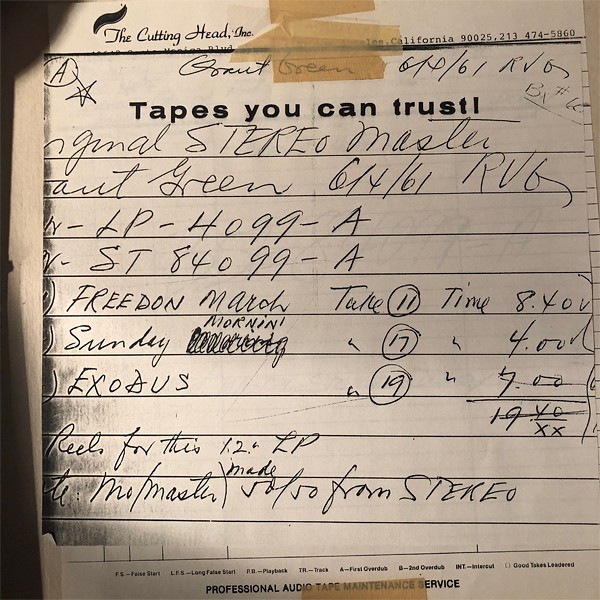 The Cutting Head, Inc.
California 90025, 213 474-5860
A Grant Green 6/4/61 RVG
Tapes you can trust!
iginal STEREO Master
ant Green 6/4/61 RVG
- LP - 4099 - A
- ST 84099 - A
) FREEDON March Take 11 Time 8.40
MORNIN'
) Sunday " 17 " 4.00
) EXODUS " 19 " 7.00
19 40
xx
Reels for this 12" LP
made
te: Mo/master) 50/50 from STEREO
F.S.—False Start L.F.S.—Long False Start P.B.—Playback TR.—Track A—First Overdub B—2nd Overdub INT.—Intercut Good Takes Leadered
PROFESSIONAL AUDIO TAPE MAINTENANCE SERVICE